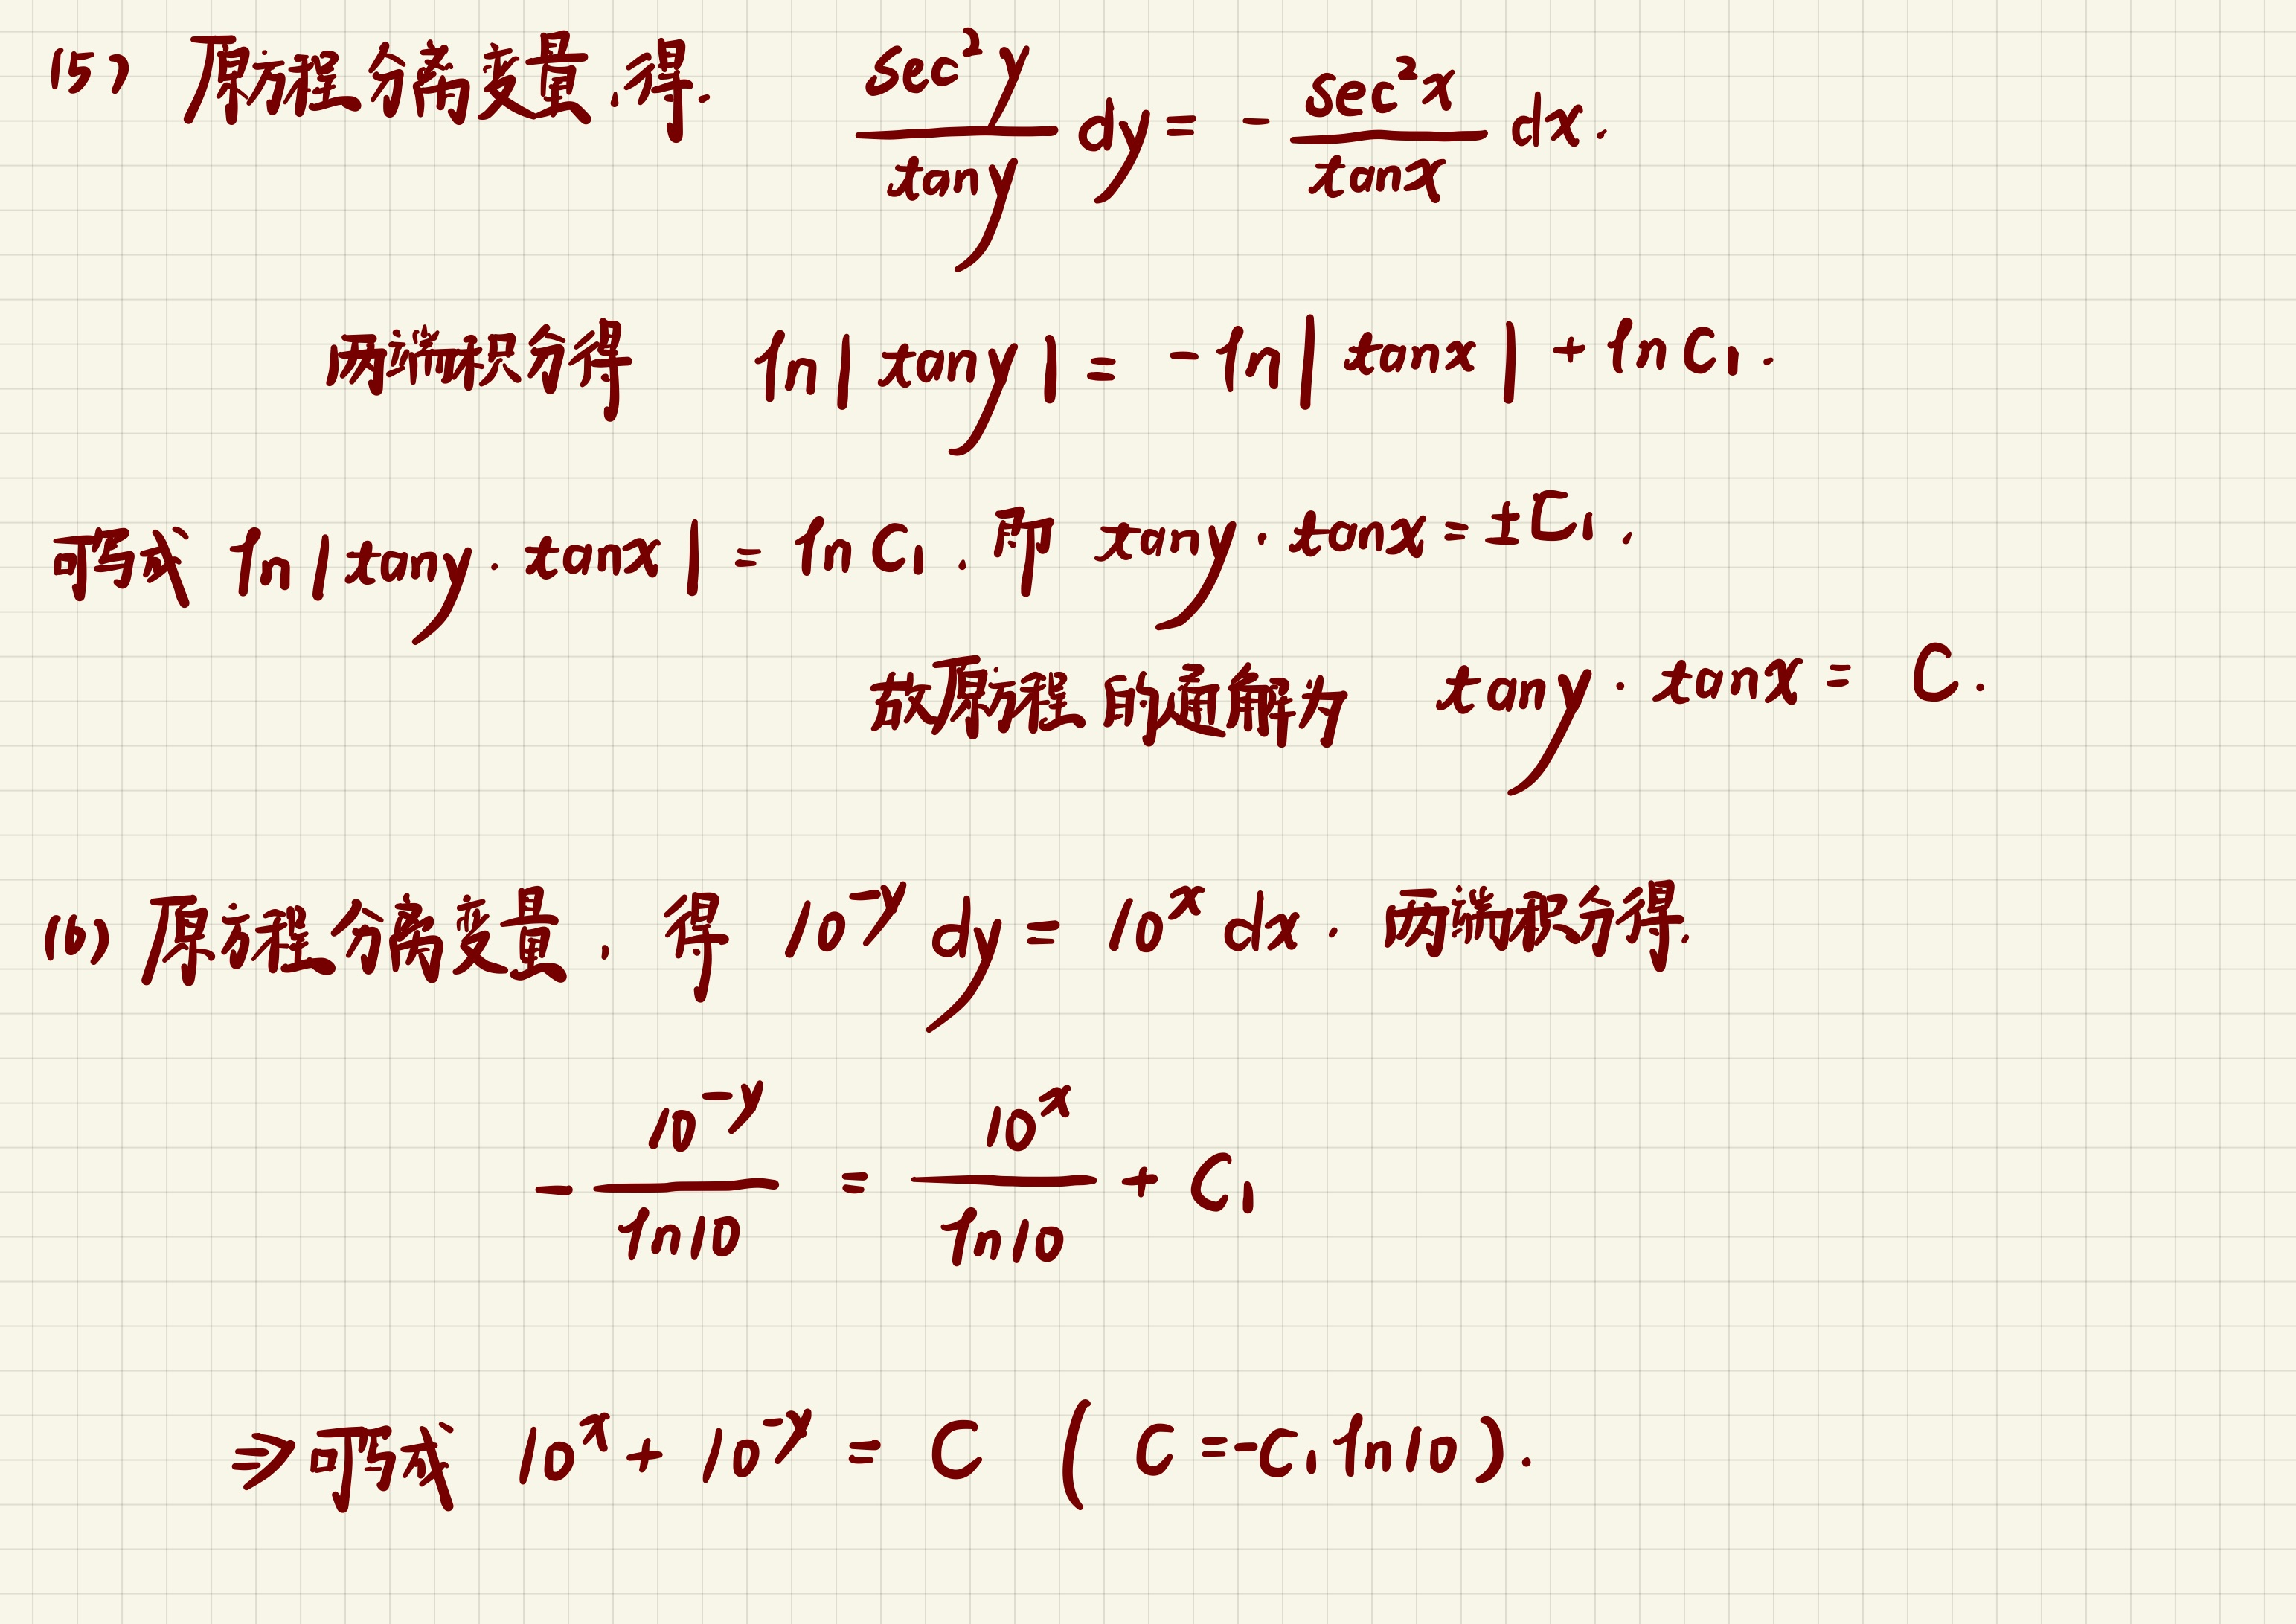 (5) 原方程分离变量,得. \frac{sec²y}{tany} dy = - \frac{sec²x}{tanx} dx.
两端积分得 ln|tany| = -ln|tanx| + lnC₁.
可写成 ln|tany·tanx| = lnC₁. 即 tany·tanx = ±C₁.
故原方程的通解为 tany·tanx = C.
(6) 原方程分离变量, 得 10^{-y} dy = 10^{x} dx. 两端积分得.
- \frac{10^{-y}}{ln10} = \frac{10^{x}}{ln10} + C₁
⇒ 可写成 10^{x} + 10^{-y} = C ( C = -C₁ ln10 ).